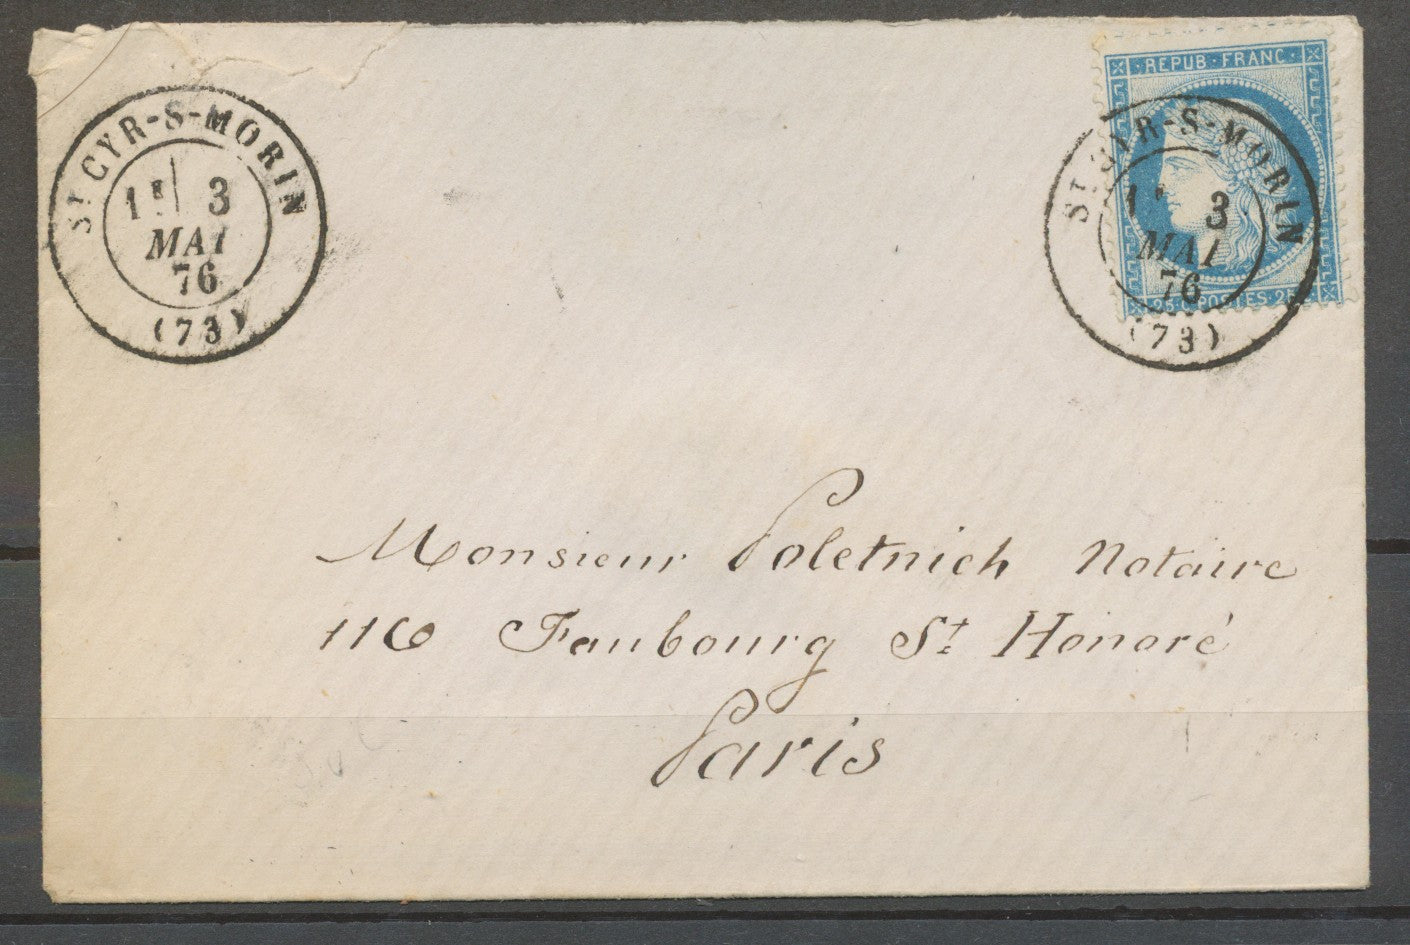 St CYR-S-MORIN
1E 3
MAI
76
(73)
REPUB·FRANC
St CYR-S-MORIN
1E 3
MAI
76
(73)
25 C POSTES 25
Monsieur Poletnich Notaire
116 Faubourg St Honoré
Paris